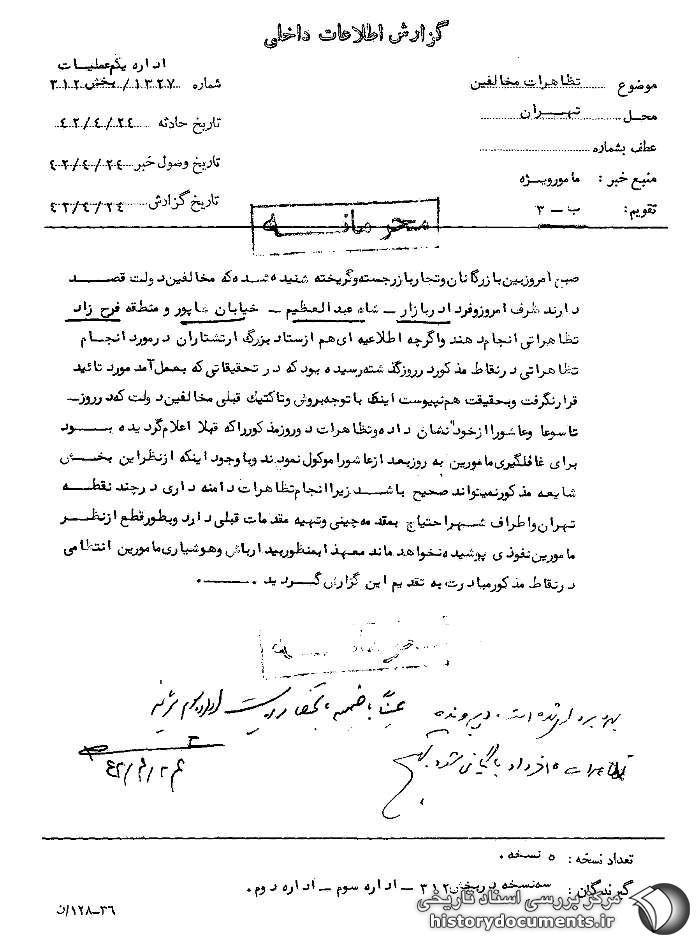 گزارش اطلاعات داخلی
اداره یکم عملیات
موضوع تظاهرات مخالفین
شماره ۱۳۲۷ / بخش ۳۱۲
محل تهران
تاریخ حادثه ۴۲/۴/۲۴
عطف بشماره
تاریخ وصول خبر ۴۲/۴/۲۴
منبع خبر : مامورویژه
تاریخ گزارش ۴۲/۴/۲۴
تقویم: ب – ۳
محرمانه
صبح امروزبین بازرگانان وتجاربازرجسته وگریخته شنیده شده که مخالفین دولت قصد
دارند ظرف امروزوفردا دربازار – شاه عبدالعظیم – خیابان شاپور و منطقه فرح زاد
تظاهراتی انجام دهند واگرچه اطلاعیه ای هم ازستاد بزرگ ارتشتاران درمورد انجام
تظاهراتی درنقاط مذکورد رروزگذشته رسیده بود که در تحقیقاتی که بعمل آمد مورد تائید
قرارنگرفت وبحقیقت هم نپیوست اینک با توجه بروش وتاکتیک قبلی مخالفین دولت که درروز–
تاسوعا وعاشورا ازخود نشان داده وتظاهرات دوروزمذکورراکه قبلا اعلام گردیده بود
برای غافلگیری مامورین به روزبعد ازعاشورا موکول نمودند وبا وجود اینکه ازنظراین بخش
شایعه مذکورنمیتواند صحیح باشد زیرا انجام تظاهرات دامنه داری درچند نقطه
تهران واطراف شهراحتیاج بمقدمه چینی وتهیه مقدمات قبلی دارد وبطورقطع ازنظر
مامورین نفوذی پوشیده نخواهد ماند معهذا بمنظوربیدارباش وهوشیاری مامورین انتظامی
درنقاط مذکورمبادرت به تقدیم این گزارش گردید .
محرمانه
عیناً با ضمیمه
بهره برداری شده است . در پرونده
تظاهرات ۱۵ خرداد بایگانی شود
۴۲/۴/۲۴
تعداد نسخه : ۵ نسخه .
گیرندگان : سه نسخه دربخش ۳۱۲ – اداره سوم – اداره دوم .
۳۶–۱۲۸/ن
مرکز بررسی اسناد تاریخی
historydocuments.ir